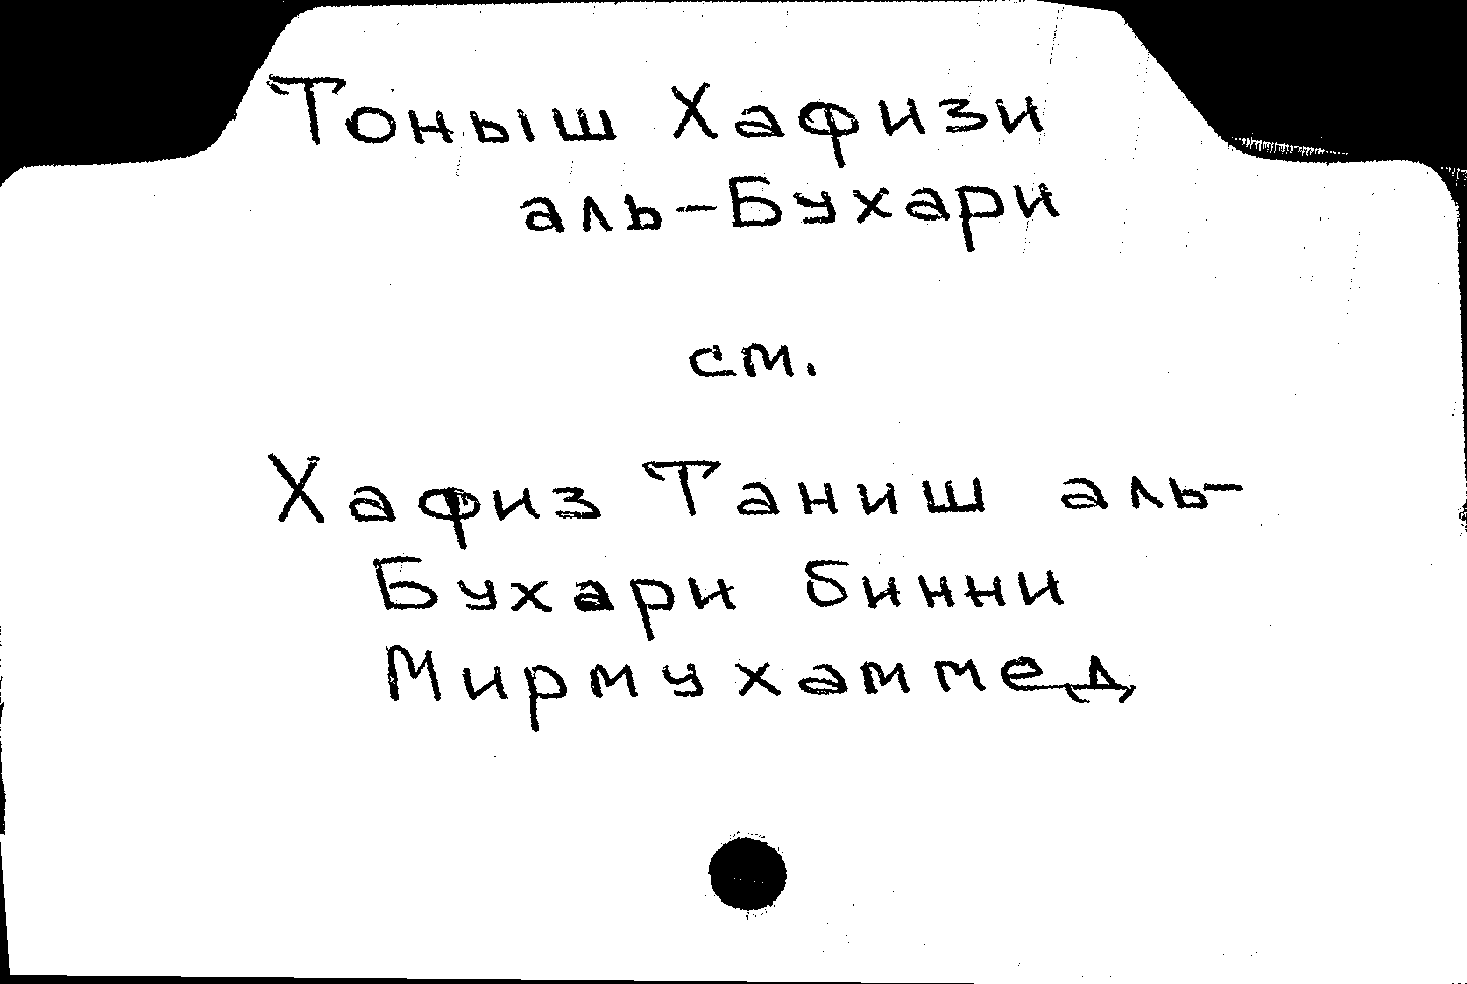 Тоныш Хафизи
аль-Бухари
см.
Хафиз Таниш аль-
Бухари бинни
Мирмухаммед